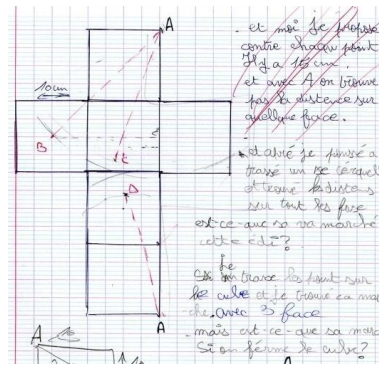 A
. et moi je propose
contre chaque point
Il y a 15 cm.
et avec A on trouve
pas la distence sur
quelque face.
10cm
B
E
D
et après je pensse a
tracé un
et trouvé la distens
sur tout les face
est-ce-que sa va marché
cette édi?
je
Si on trace les point sur
le cube et je trouve ca mar
che. avec 3 face
. mais est-ce-que sa marc
Si on fèrme le cube?
A
A
A